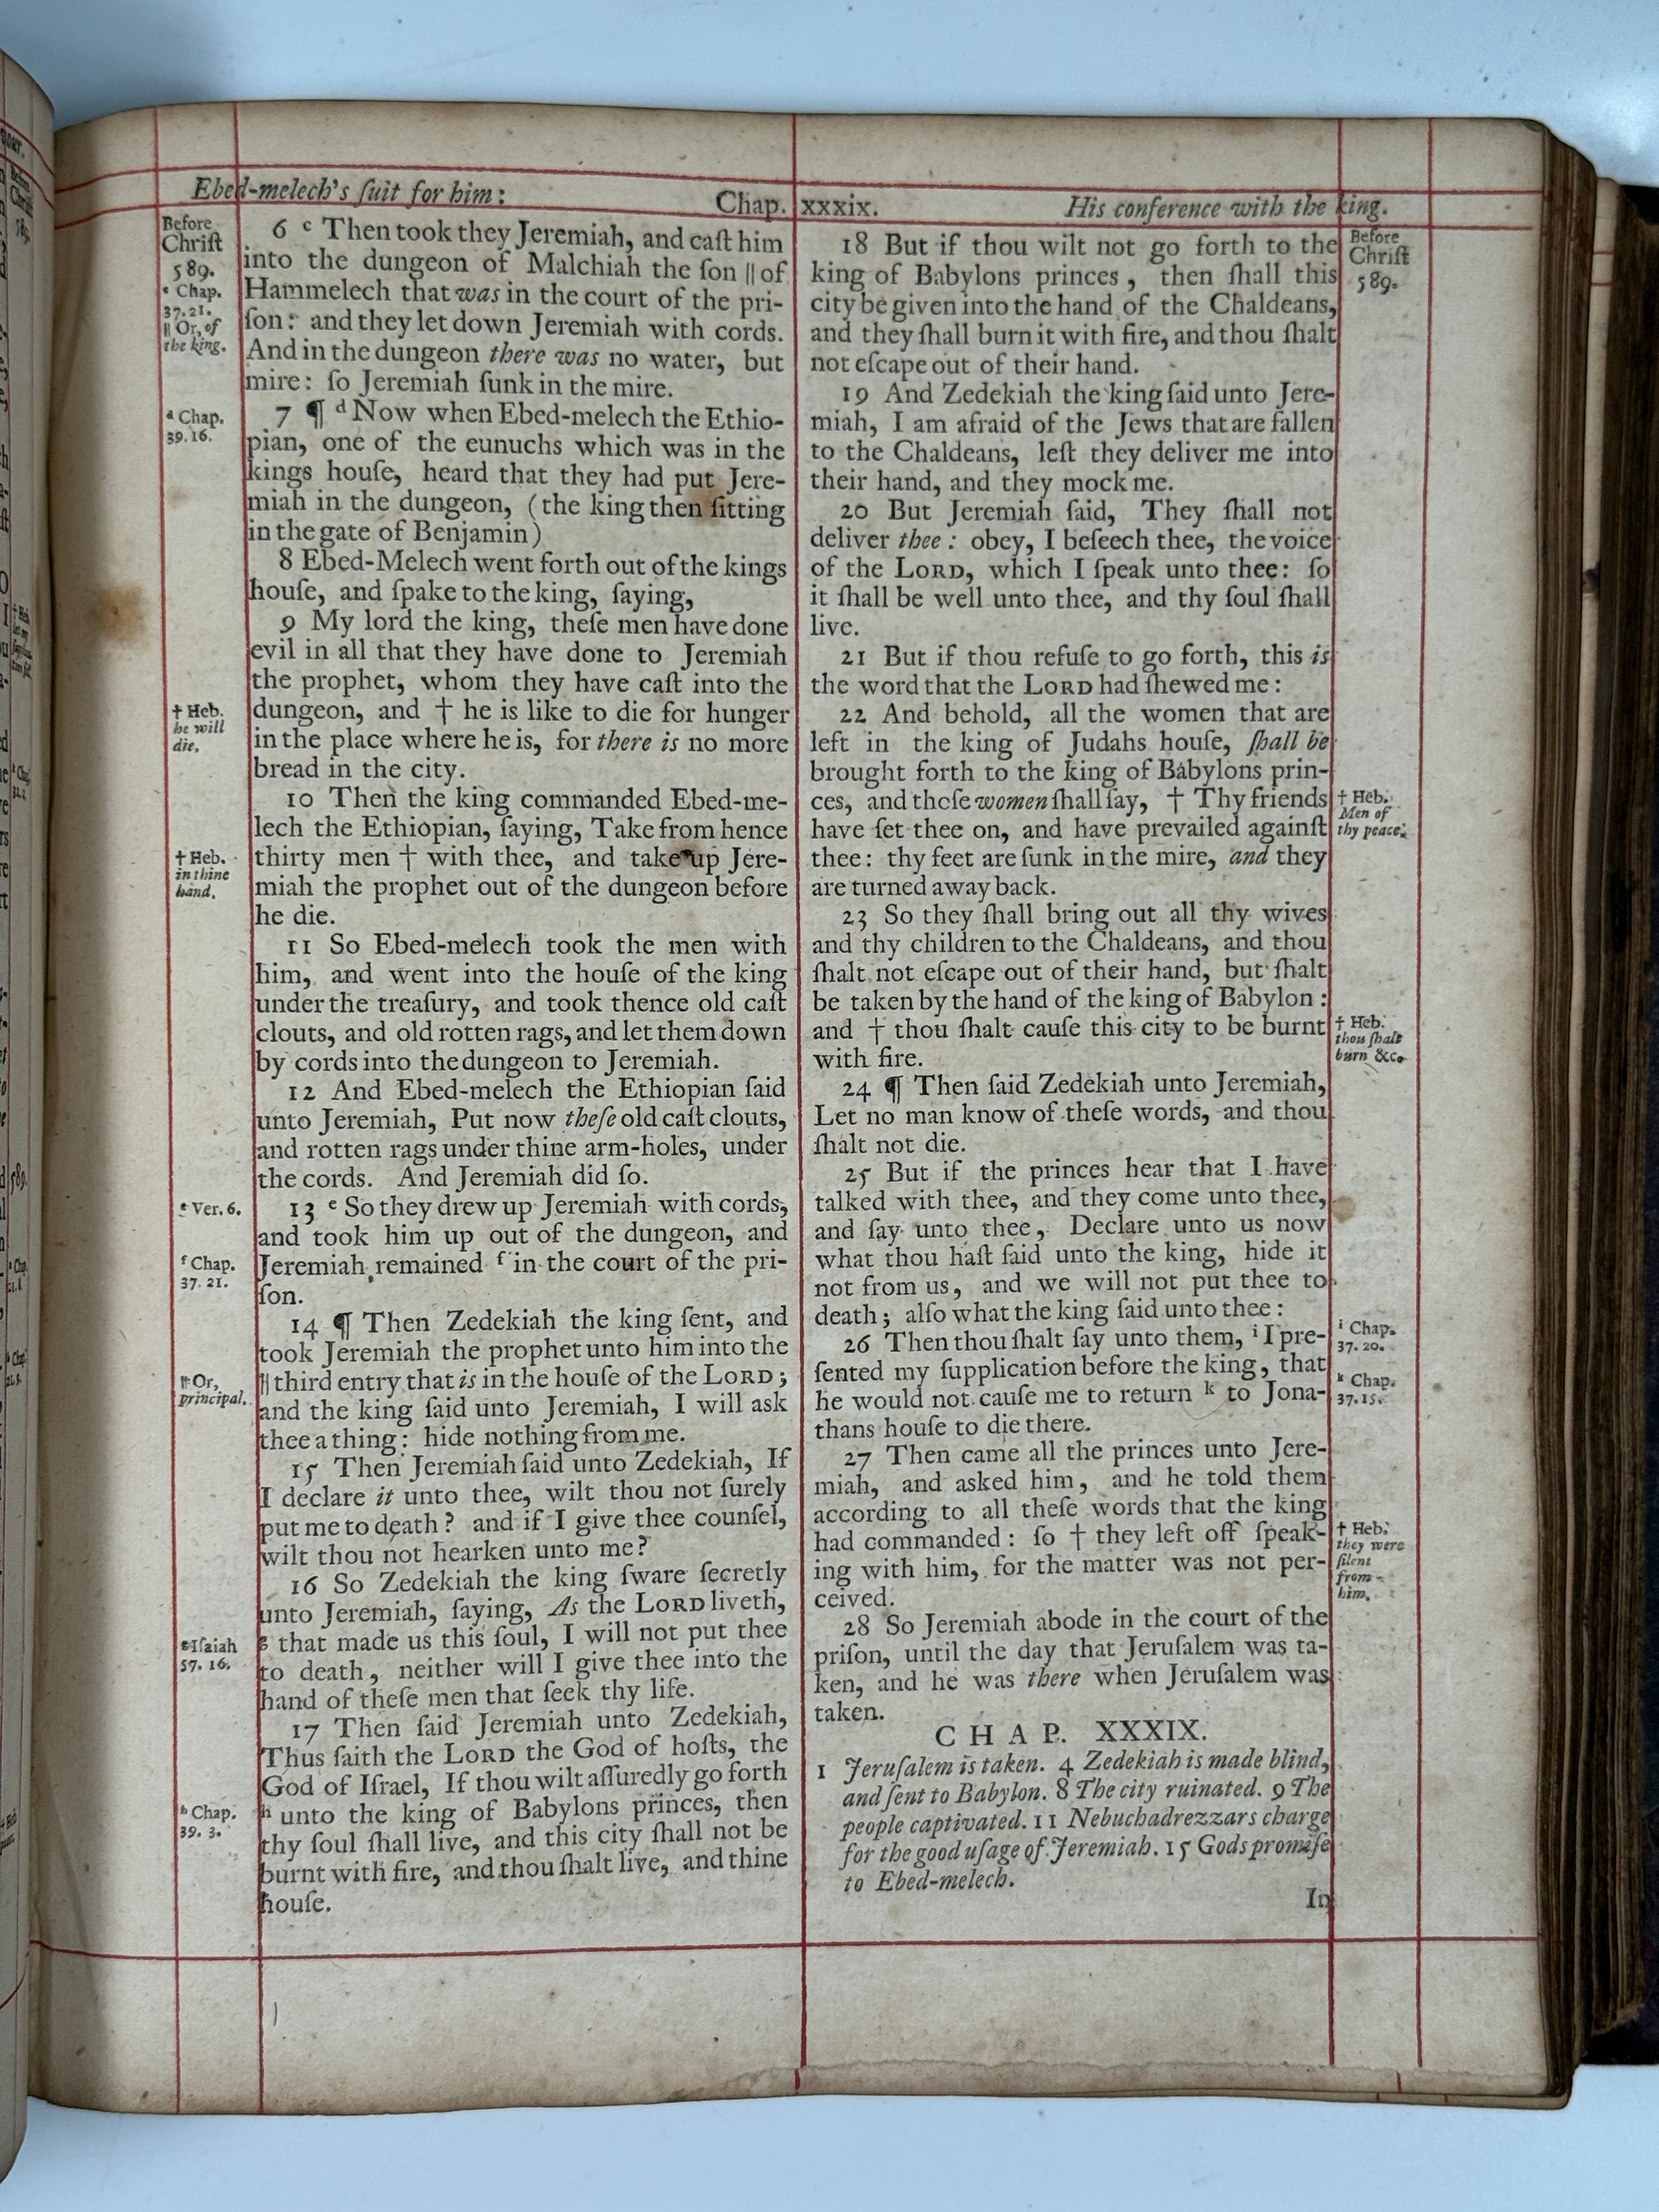 Ebed-melech's ſuit for him:
Chap. xxxix.
His conference with the king.
Before
Chriſt
589.
ᶜ Chap.
37.21.
|| Or, of
the king.
6 ᶜ Then took they Jeremiah, and caſt him
into the dungeon of Malchiah the ſon || of
Hammelech that was in the court of the pri-
ſon: and they let down Jeremiah with cords.
And in the dungeon there was no water, but
mire: ſo Jeremiah ſunk in the mire.
ᵈ Chap.
39.16.
7 ¶ ᵈ Now when Ebed-melech the Ethio-
pian, one of the eunuchs which was in the
kings houſe, heard that they had put Jere-
miah in the dungeon, (the king then ſitting
in the gate of Benjamin)
8 Ebed-Melech went forth out of the kings
houſe, and ſpake to the king, ſaying,
9 My lord the king, theſe men have done
evil in all that they have done to Jeremiah
the prophet, whom they have caſt into the
dungeon, and † he is like to die for hunger
in the place where he is, for there is no more
bread in the city.
† Heb.
he will
die.
10 Then the king commanded Ebed-me-
lech the Ethiopian, ſaying, Take from hence
thirty men † with thee, and take up Jere-
miah the prophet out of the dungeon before
he die.
† Heb.
in thine
hand.
11 So Ebed-melech took the men with
him, and went into the houſe of the king
under the treaſury, and took thence old caſt
clouts, and old rotten rags, and let them down
by cords into the dungeon to Jeremiah.
12 And Ebed-melech the Ethiopian ſaid
unto Jeremiah, Put now theſe old caſt clouts,
and rotten rags under thine arm-holes, under
the cords. And Jeremiah did ſo.
ᵉ Ver. 6.
13 ᵉ So they drew up Jeremiah with cords,
and took him up out of the dungeon, and
Jeremiah remained ᶠ in the court of the pri-
ſon.
ᶠ Chap.
37. 21.
14 ¶ Then Zedekiah the king ſent, and
took Jeremiah the prophet unto him into the
|| third entry that is in the houſe of the LORD;
and the king ſaid unto Jeremiah, I will ask
thee a thing: hide nothing from me.
|| Or,
principal.
15 Then Jeremiah ſaid unto Zedekiah, If
I declare it unto thee, wilt thou not ſurely
put me to death? and if I give thee counſel,
wilt thou not hearken unto me?
16 So Zedekiah the king ſware ſecretly
unto Jeremiah, ſaying, As the LORD liveth,
ᵍ that made us this ſoul, I will not put thee
to death, neither will I give thee into the
hand of theſe men that ſeek thy life.
ᵍ Iſaiah
57. 16.
17 Then ſaid Jeremiah unto Zedekiah,
Thus ſaith the LORD the God of hoſts, the
God of Iſrael, If thou wilt aſſuredly go forth
ʰ unto the king of Babylons princes, then
thy ſoul ſhall live, and this city ſhall not be
burnt with fire, and thou ſhalt live, and thine
houſe.
ʰ Chap.
39. 3.
18 But if thou wilt not go forth to the
king of Babylons princes, then ſhall this
city be given into the hand of the Chaldeans,
and they ſhall burn it with fire, and thou ſhalt
not eſcape out of their hand.
Before
Chriſt
589.
19 And Zedekiah the king ſaid unto Jere-
miah, I am afraid of the Jews that are fallen
to the Chaldeans, leſt they deliver me into
their hand, and they mock me.
20 But Jeremiah ſaid, They ſhall not
deliver thee: obey, I beſeech thee, the voice
of the LORD, which I ſpeak unto thee: ſo
it ſhall be well unto thee, and thy ſoul ſhall
live.
21 But if thou refuſe to go forth, this is
the word that the LORD had ſhewed me:
22 And behold, all the women that are
left in the king of Judahs houſe, ſhall be
brought forth to the king of Babylons prin-
ces, and thoſe women ſhall ſay, † Thy friends
have ſet thee on, and have prevailed againſt
thee: thy feet are ſunk in the mire, and they
are turned away back.
† Heb.
Men of
thy peace.
23 So they ſhall bring out all thy wives
and thy children to the Chaldeans, and thou
ſhalt not eſcape out of their hand, but ſhalt
be taken by the hand of the king of Babylon:
and † thou ſhalt cauſe this city to be burnt
with fire.
† Heb.
thou ſhalt
burn &c.
24 ¶ Then ſaid Zedekiah unto Jeremiah,
Let no man know of theſe words, and thou
ſhalt not die.
25 But if the princes hear that I have
talked with thee, and they come unto thee,
and ſay unto thee, Declare unto us now
what thou haſt ſaid unto the king, hide it
not from us, and we will not put thee to
death; alſo what the king ſaid unto thee:
26 Then thou ſhalt ſay unto them, ⁱ I pre-
ſented my ſupplication before the king, that
he would not cauſe me to return ᵏ to Jona-
thans houſe to die there.
ⁱ Chap.
37. 20.
ᵏ Chap.
37.15.
27 Then came all the princes unto Jere-
miah, and asked him, and he told them
according to all theſe words that the king
had commanded: ſo † they left off ſpeak-
ing with him, for the matter was not per-
ceived.
† Heb.
they were
ſilent
from
him.
28 So Jeremiah abode in the court of the
priſon, until the day that Jeruſalem was ta-
ken, and he was there when Jeruſalem was
taken.
CHAP. XXXIX.
1 Jeruſalem is taken. 4 Zedekiah is made blind,
and ſent to Babylon. 8 The city ruinated. 9 The
people captivated. 11 Nebuchadrezzars charge
for the good uſage of Jeremiah. 15 Gods promiſe
to Ebed-melech.
In